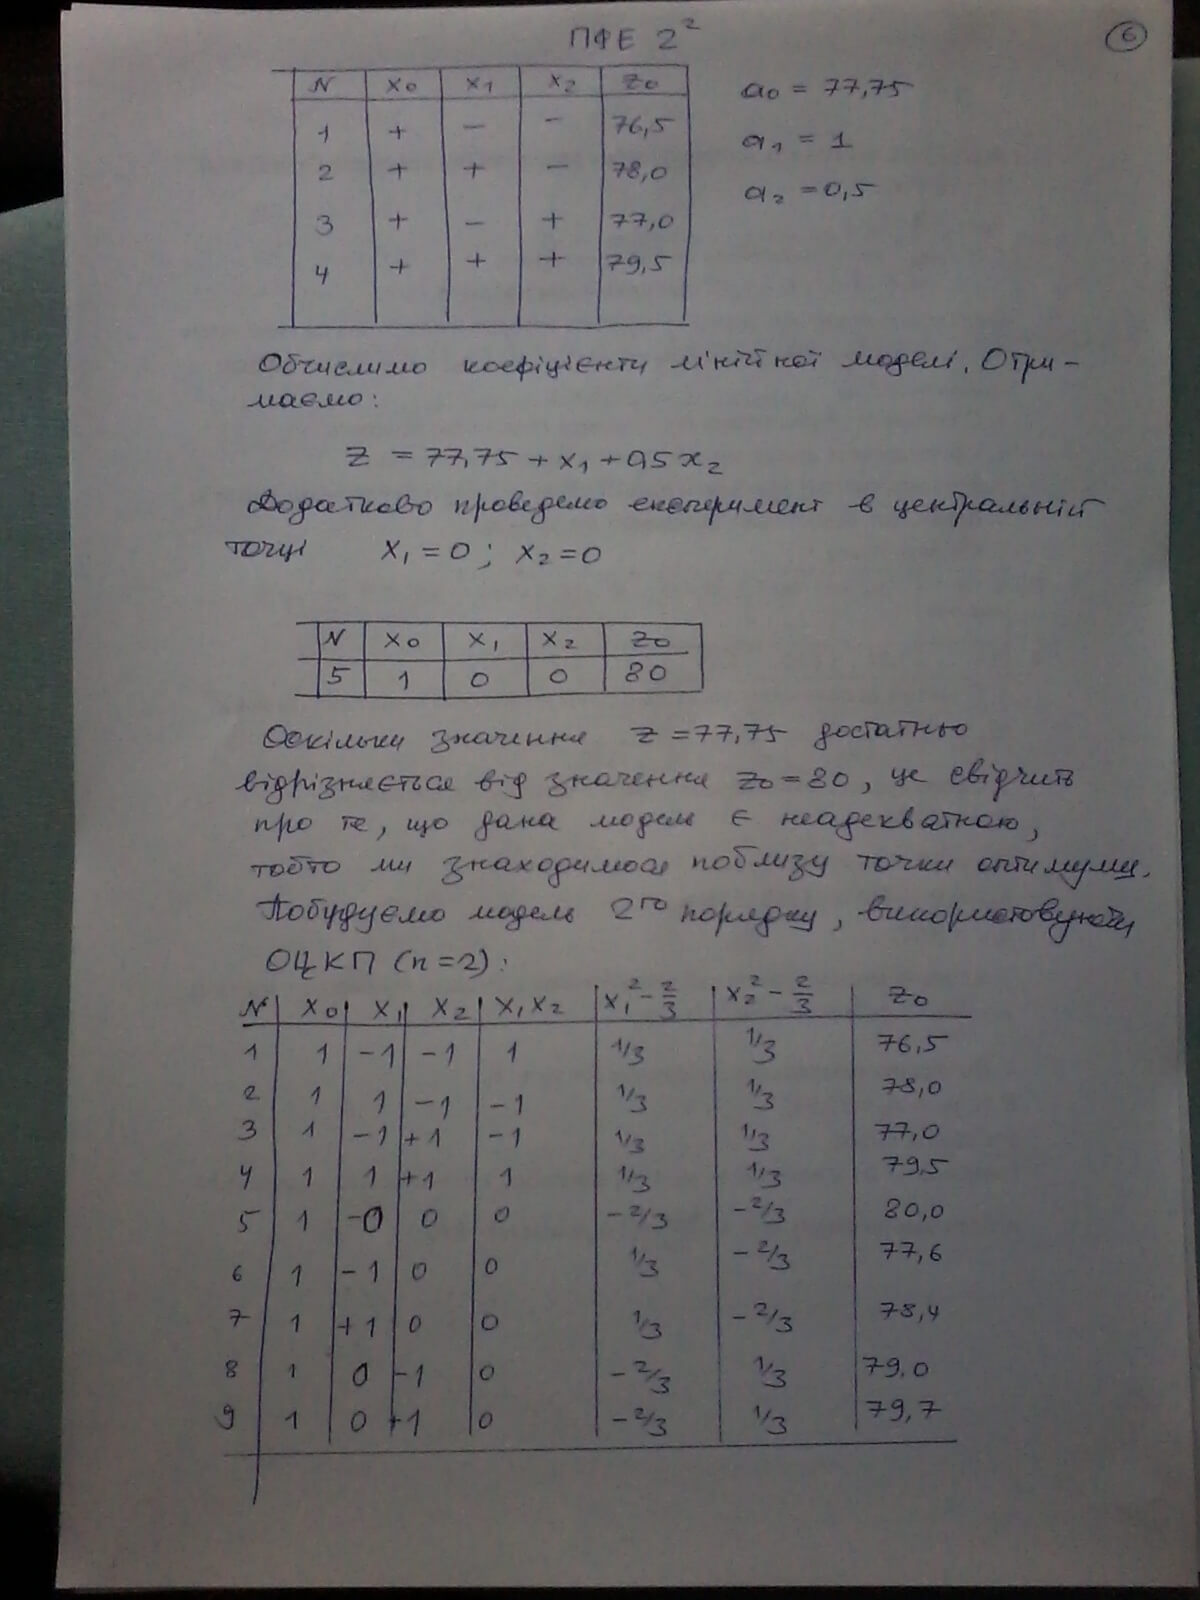 ПФЕ 2²
6
N x₀ x₁ x₂ z₀
1 + − − 76,5
2 + + − 78,0
3 + − + 77,0
4 + + + 79,5
a₀ = 77,75
a₁ = 1
a₂ = 0,5
Обчислимо коефіцієнти лінійної моделі. Отри-
маємо:
z = 77,75 + x₁ + 0,5 x₂
Додатково проведемо експеримент в центральній
точці x₁ = 0 ; x₂ = 0
N x₀ x₁ x₂ z₀
5 1 0 0 80
Оскільки значення z = 77,75 достатньо
відрізняється від значення z₀ = 80, це свідчить
про те, що дана модель є неадекватною,
тобто ми знаходимося поблизу точки оптимуму.
Побудуємо модель 2го порядку, використовуючи
ОЦКП (n=2):
N x₀ x₁ x₂ x₁x₂ x₁² − 2/3 x₂² − 2/3 z₀
1 1 −1 −1 1 1/3 1/3 76,5
2 1 1 −1 −1 1/3 1/3 78,0
3 1 −1 +1 −1 1/3 1/3 77,0
4 1 1 +1 1 1/3 1/3 79,5
5 1 −0 0 0 −2/3 −2/3 80,0
6 1 −1 0 0 1/3 −2/3 77,6
7 1 +1 0 0 1/3 −2/3 78,4
8 1 0 −1 0 −2/3 1/3 79,0
9 1 0 +1 0 −2/3 1/3 79,7